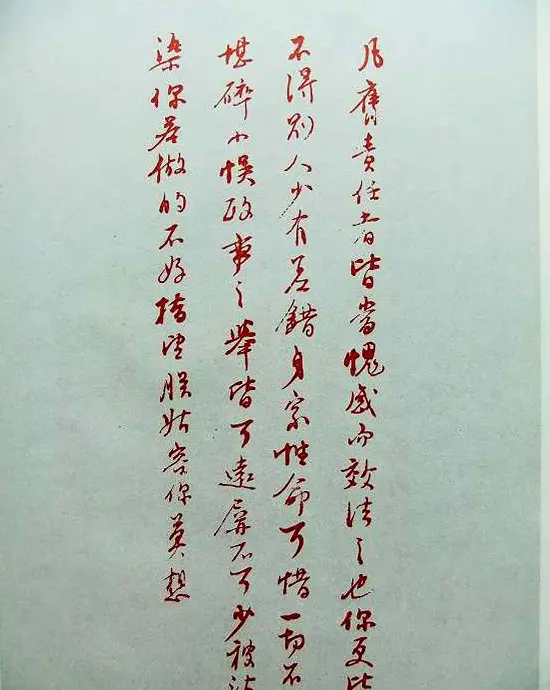 凡膺責任者皆當愧感而效法之也你更比
不得別人少有差錯身家性命可惜一切不
堪碎小悞政事之舉皆可遠屏不可少被沾
染你若做的不好指望朕姑容你莫想